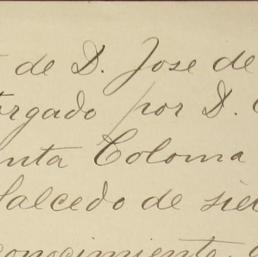 de D. Jose de
orgado por D.
nta Coloma
Salcedo de sie
conocimiento